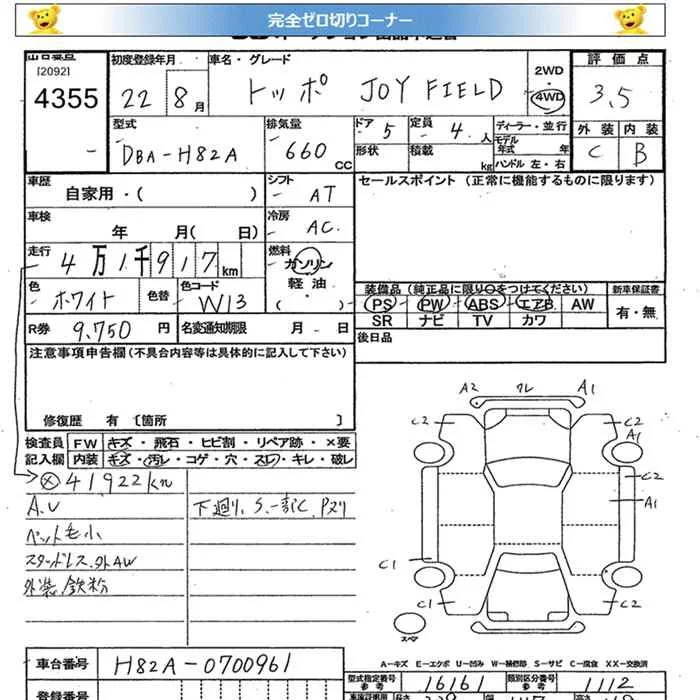 完全ゼロ切りコーナー
[2092]
4355
初度登録年月 22 8月
車名・グレード トッポ JOY FIELD
2WD
4WD
評価点
3.5
外装 内装
C B
型式 DBA-H82A
排気量 660 CC
ドア 5 定員 4 人
形状 積載 kg
ディーラー・並行
モデル年式 年
ハンドル 左・右
車歴 自家用・( )
シフト AT
セールスポイント (正常に機能するものに限ります)
車検 年 月( 日)
冷房 AC
走行 4万1千917km
燃料 ガソリン 軽油 ・ ( )
色 ホワイト 色替 色コード W13
装備品 (純正品に限り○をつけてください) 新車保証書
PS PW ABS エアB AW 有・無
SR ナビ TV カワ
R券 9,750円 名変通知期限 月 日
後日品
注意事項申告欄(不具合内容等は具体的に記入して下さい)
修復歴 有 〔箇所 〕
検査員 FW キズ・飛石・ヒビ割・リペア跡・×要
記入欄 内装 キズ・汚レ・コゲ・穴・スレ・キレ・破レ
41922km
A.U 下廻り、S.一部C、Pヌリ
ペット毛小
スタッドレス.外AW
外装.鉄粉
A2 クレ A1
C2 C2
A1
C2
A1
C1
C1 C2
スペア
A-キズ E-エクボ U-凹み W-補修跡 S-サビ C-腐食 XX-交換済
車台番号 H82A-0700961
型式指定番号 参考 16161 類別区分番号 参考 1112
登録番号